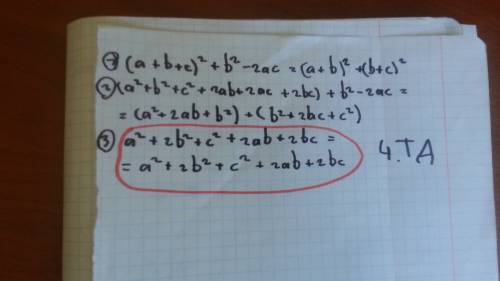 ① (a+b+c)² + b² - 2ac = (a+b)² + (b+c)²
② (a² + b² + c² + 2ab + 2ac + 2bc) + b² - 2ac =
= (a² + 2ab + b²) + (b² + 2bc + c²)
③ a² + 2b² + c² + 2ab + 2bc =
= a² + 2b² + c² + 2ab + 2bc
4. TA